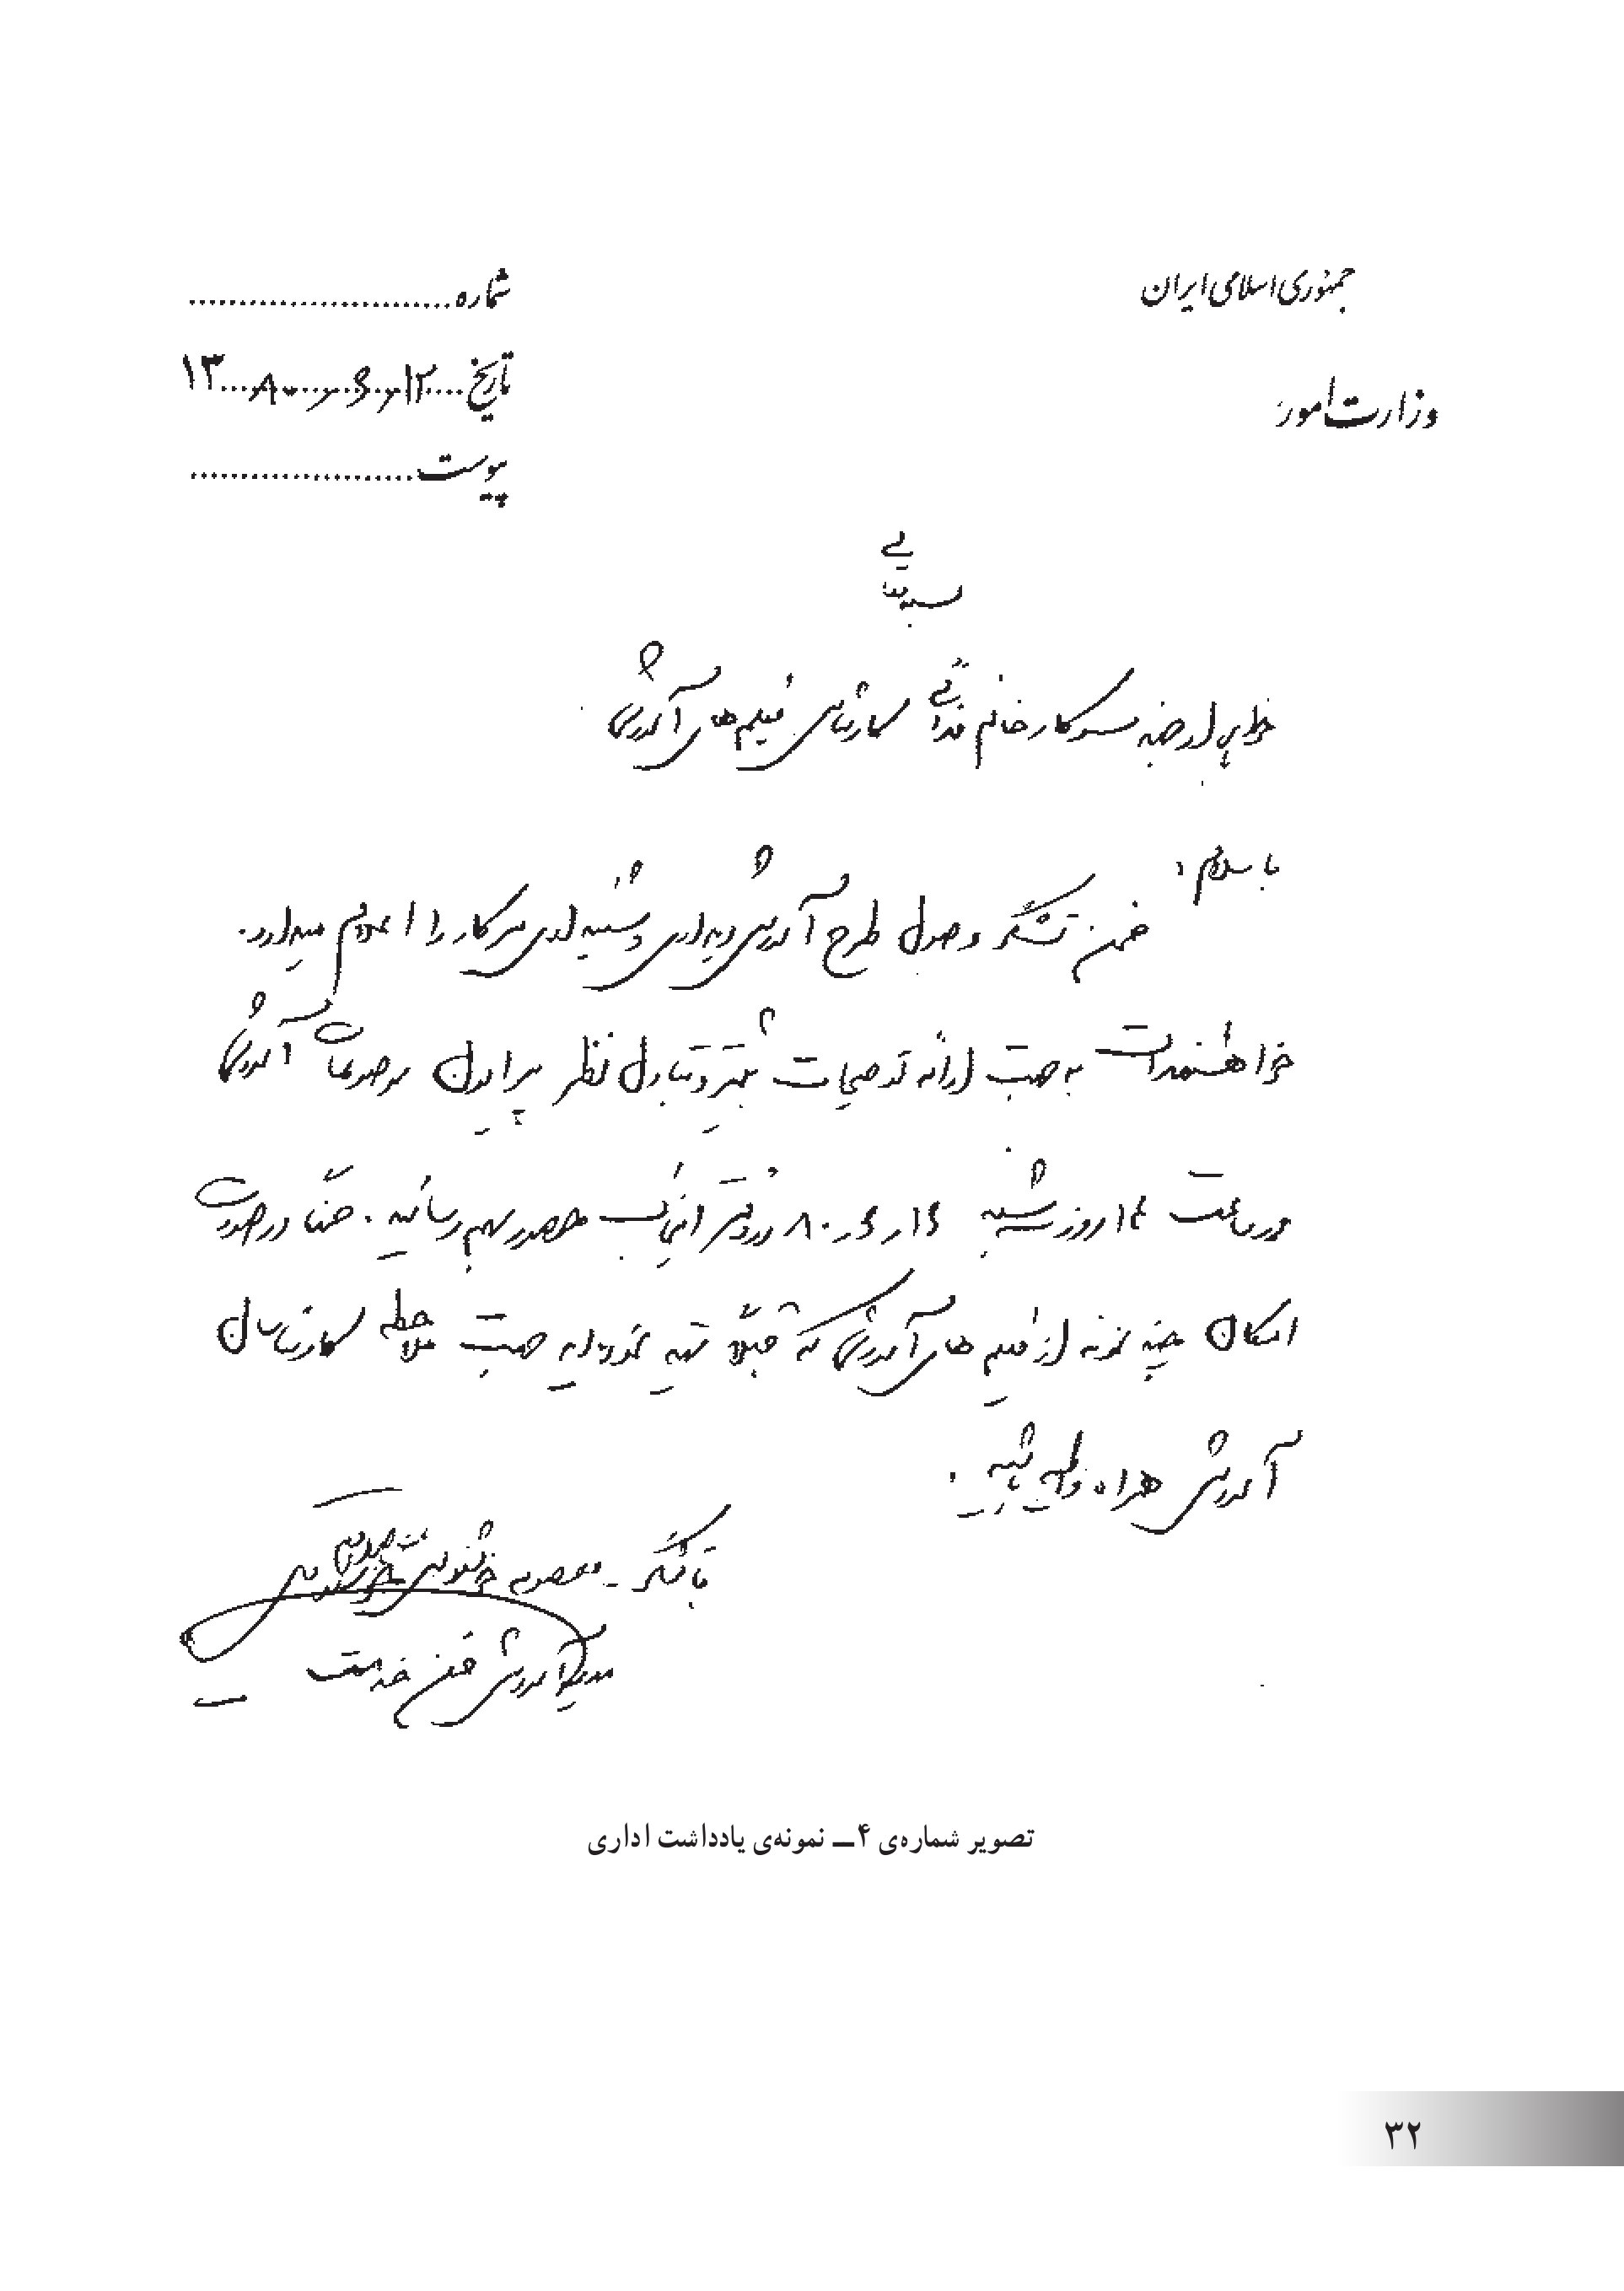 جمهوری اسلامی ایران
وزارت امور
شماره........................
تاریخ....۱۲ر۶ر۸۰....۱۳
پیوست........................
بسمه تعالی
خواهر ارجمند سرکار خانم فدائی کارشناس فیلم‌های آموزشی
با سلام،
ضمن تشکر وصول طرح آموزش دیداری و شنیداری سرکار را اعلام میدارد.
خواهشمند است به جهت ارائه توضیحات بیشتر و تبادل نظر پیرامون موضوعات آموزشی
در ساعت ۱۴ روز شنبه ۱۶ر۶ر۸۰ در دفتر اینجانب حضور بهم رسانید. ضمنا در صورت
امکان چند نمونه از فیلم های آموزشی که قبلا تهیه نموده‌اید جهت ملاحظه کارشناسان
آموزش همراه داشته باشید.
با تشکر - معصومه
مدیر آموزش ضمن خدمت
تصویر شماره‌ی ۴ــ نمونه‌ی یادداشت اداری
۳۲